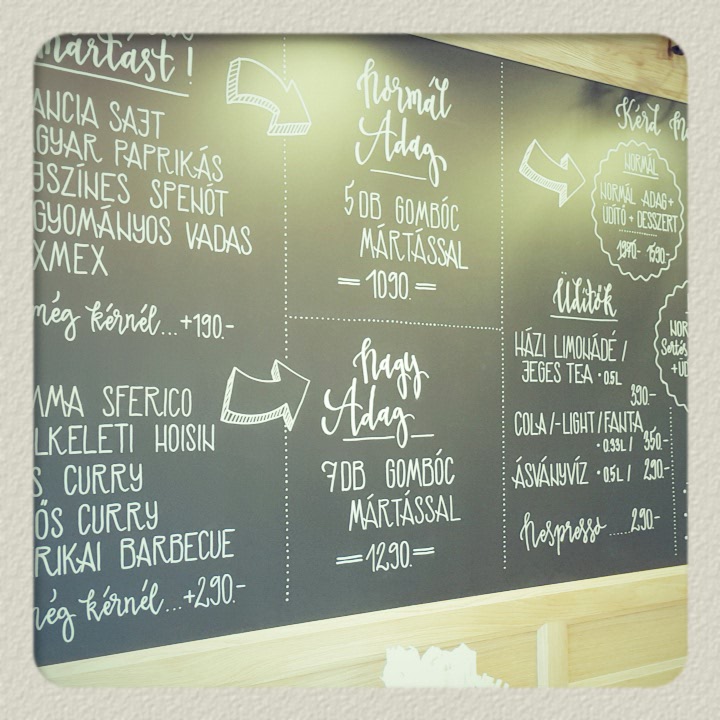 Mártást!
ANCIA SAJT
GYAR PAPRIKÁS
JSZÍNES SPENÓT
GYOMÁNYOS VADAS
XMEX
még kérnél...+190.-
MMA SFERICO
LKELETI HOISIN
S CURRY
ŐS CURRY
RIKAI BARBECUE
még kérnél...+290.-
Normál
Adag
5 DB GOMBÓC
MÁRTÁSSAL
=1090.=
Nagy
Adag
7DB GOMBÓC
MÁRTÁSSAL
=1290.=
Kérd
NORMÁL
NORMÁL ADAG+
ÜDÍTŐ + DESSZERT
1590.-
Üdítők
HÁZI LIMONÁDÉ /
JEGES TEA • 0.5L
390.-
COLA/-LIGHT/FANTA
• 0.33L / 350.-
ÁSVÁNYVÍZ • 0.5L / 290.-
Nespresso .....290.-
NOR
Sertés
+ÜD